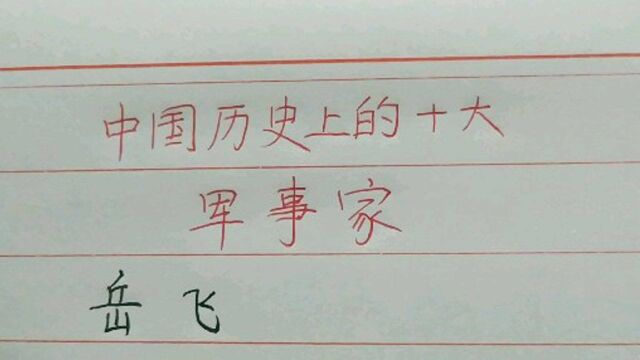 中国历史上的十大
军事家
岳飞